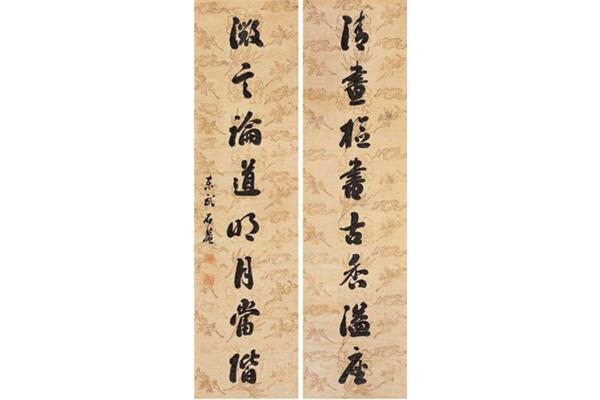 清晝書古香溢座
微言論道明月當階
東武石菴